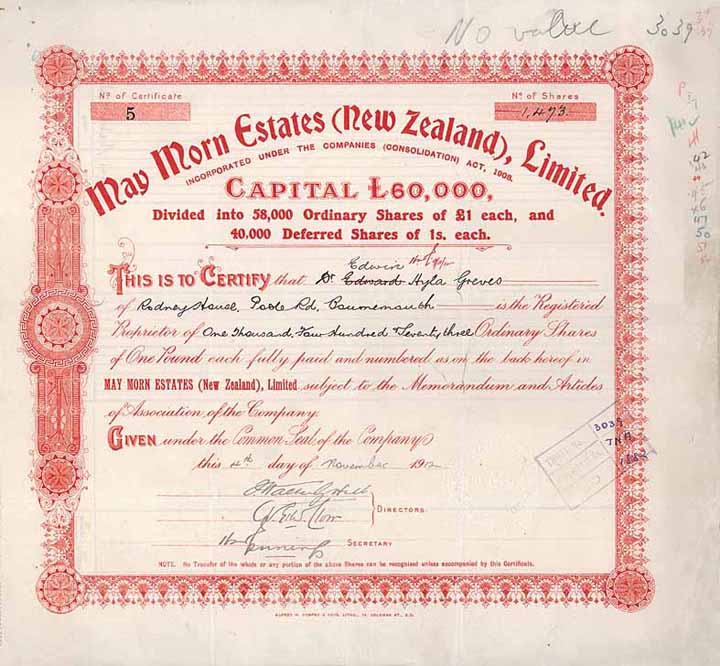 No value 3039
No of Certificate
No of Shares
5
1,473
May Morn Estates (New Zealand), Limited.
INCORPORATED UNDER THE COMPANIES (CONSOLIDATION) ACT, 1908.
CAPITAL £60,000,
Divided into 58,000 Ordinary Shares of £1 each, and
40,000 Deferred Shares of 1s. each.
Edwin
THIS IS TO CERTIFY that Dr Edward Hyla Greves
of Rodney House, Poole Rd, Bournemouth is the Registered
Proprietor of One Thousand, Four Hundred & Seventy three Ordinary Shares
of One Pound each fully paid and numbered as on the back hereof in
MAY MORN ESTATES (New Zealand), Limited subject to the Memorandum and Articles
of Association, of the Company.
GIVEN under the Common Seal of the Company
this 4th day of November 1912
DIRECTORS
SECRETARY
NOTE. No Transfer of the whole or any portion of the above Shares can be recognised unless accompanied by this Certificate.
3039
42
47
50